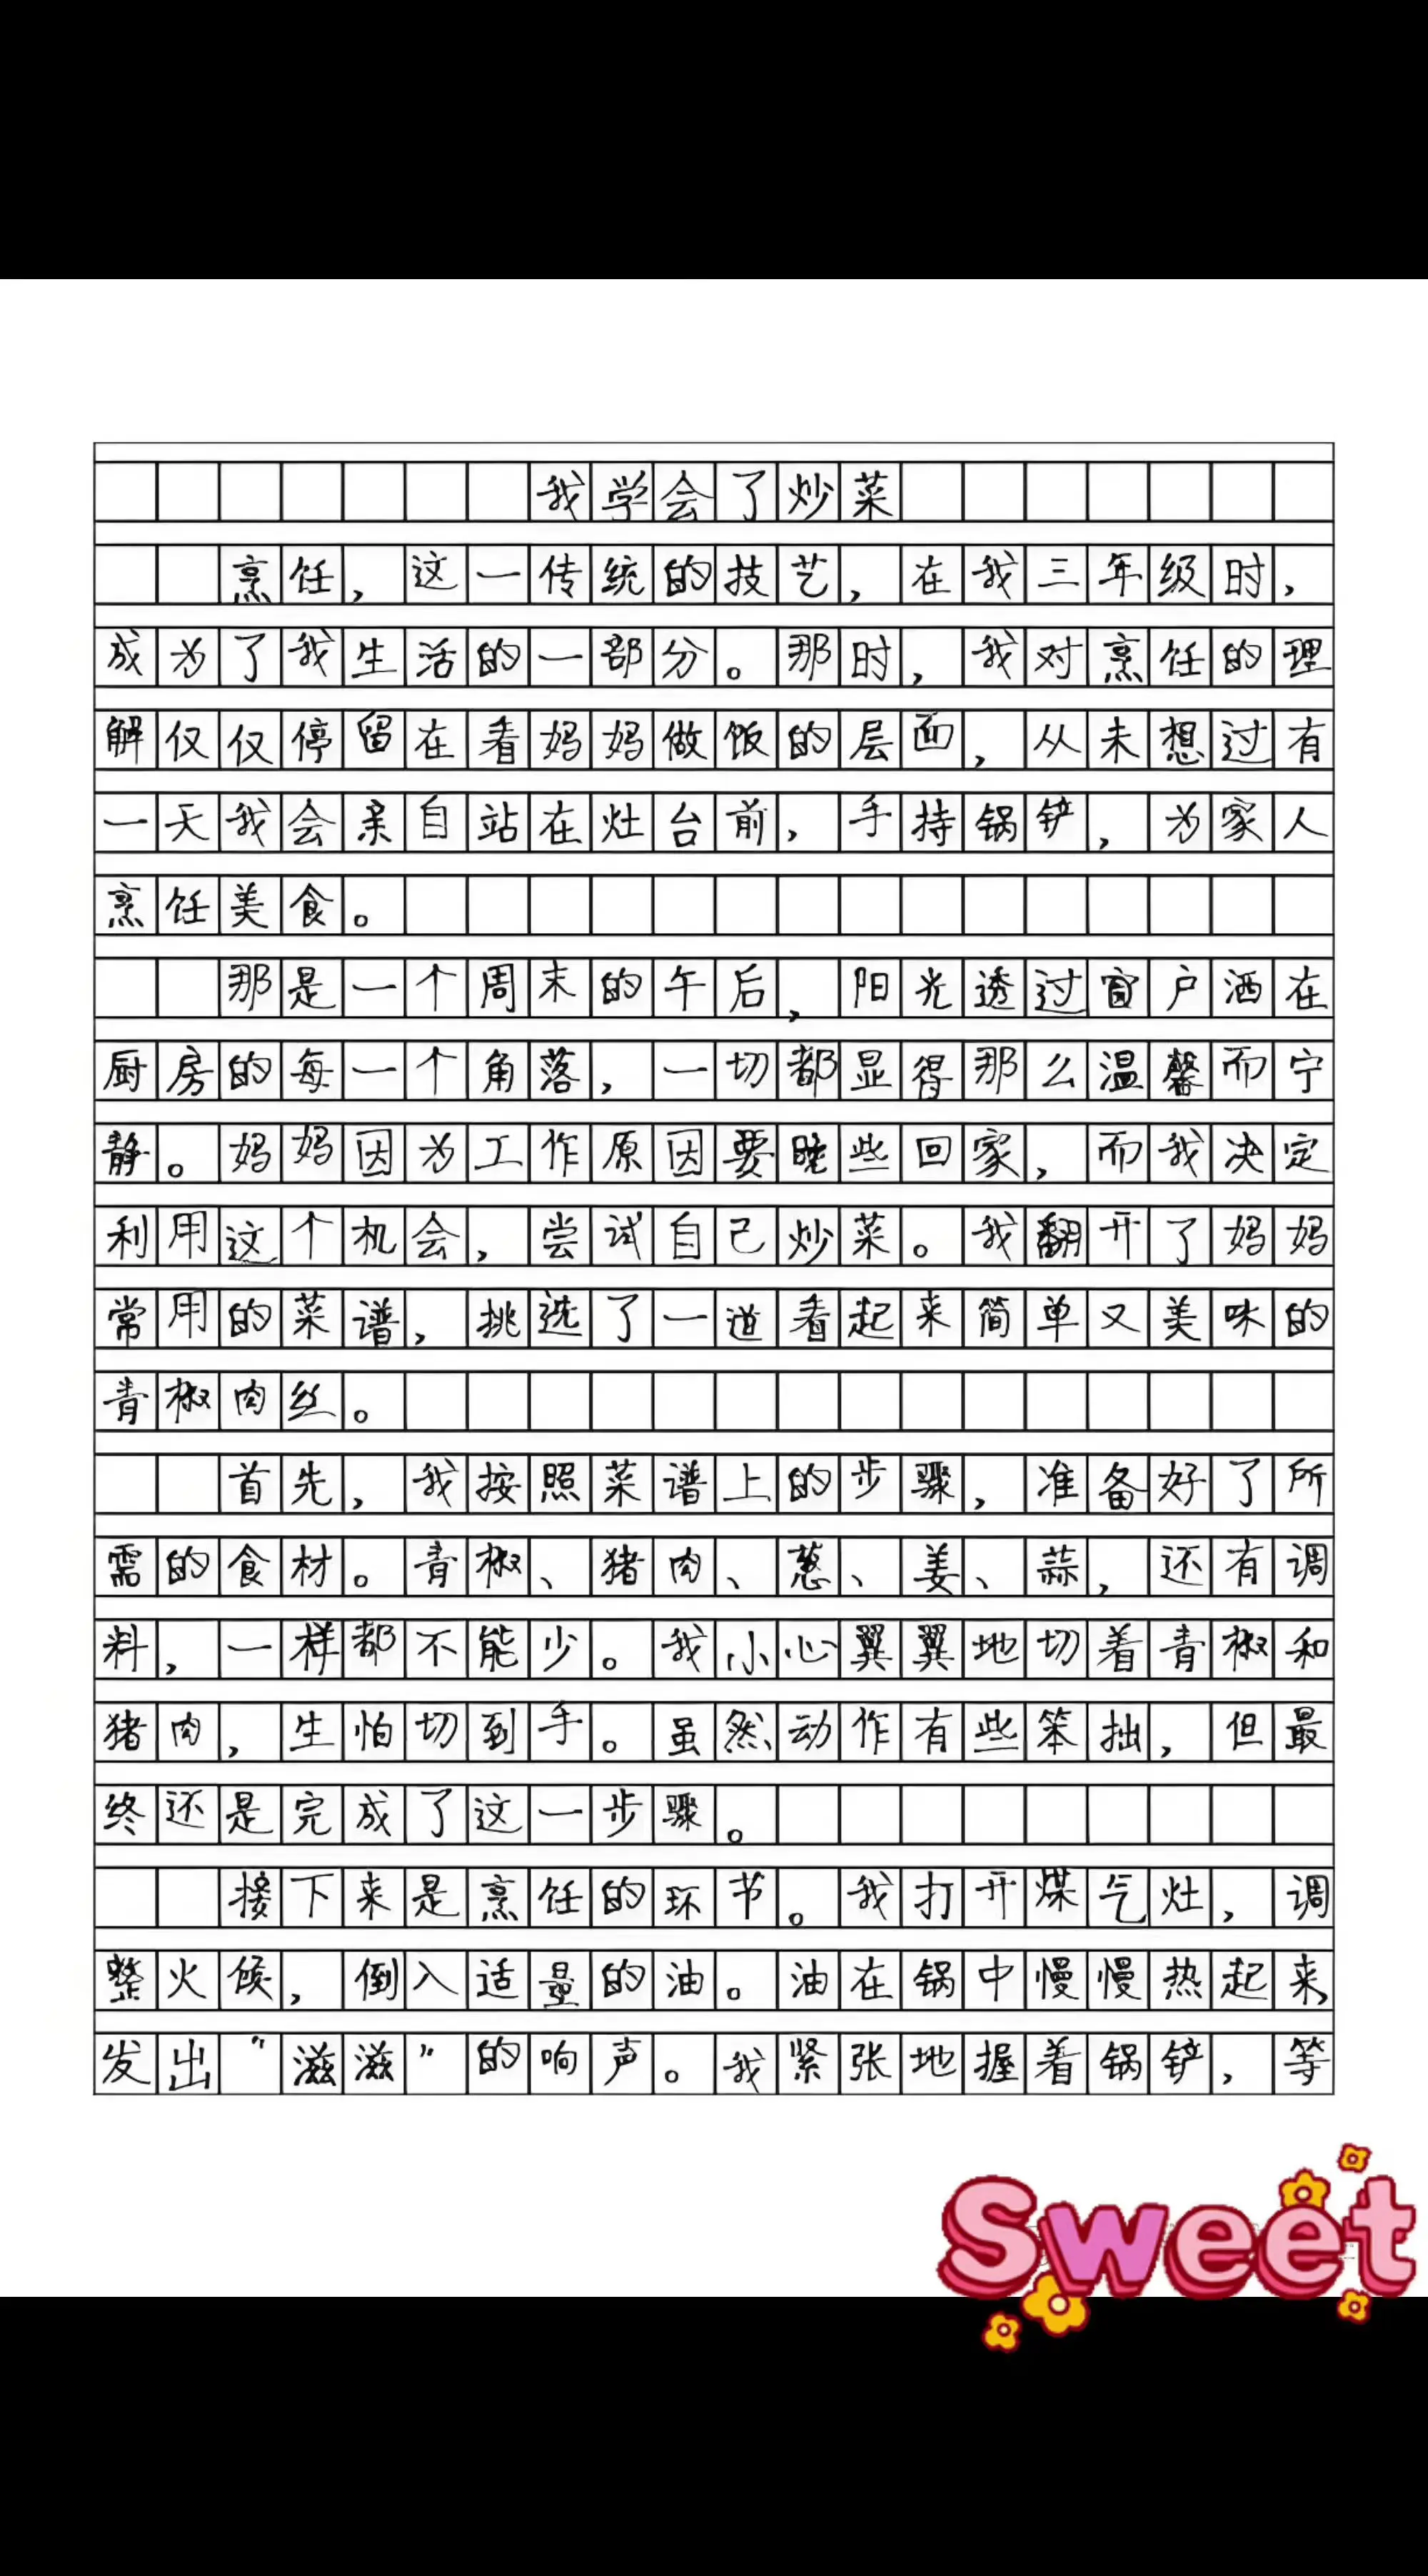 我学会了炒菜
烹饪，这一传统的技艺，在我三年级时，
成为了我生活的一部分。那时，我对烹饪的理
解仅仅停留在看妈妈做饭的层面，从未想过有
一天我会亲自站在灶台前，手持锅铲，为家人
烹饪美食。
那是一个周末的午后，阳光透过窗户洒在
厨房的每一个角落，一切都显得那么温馨而宁
静。妈妈因为工作原因要晚些回家，而我决定
利用这个机会，尝试自己炒菜。我翻开了妈妈
常用的菜谱，挑选了一道看起来简单又美味的
青椒肉丝。
首先，我按照菜谱上的步骤，准备好了所
需的食材。青椒、猪肉、葱、姜、蒜，还有调
料，一样都不能少。我小心翼翼地切着青椒和
猪肉，生怕切到手。虽然动作有些笨拙，但最
终还是完成了这一步骤。
接下来是烹饪的环节。我打开煤气灶，调
整火候，倒入适量的油。油在锅中慢慢热起来，
发出“滋滋”的响声。我紧张地握着锅铲，等
Sweet